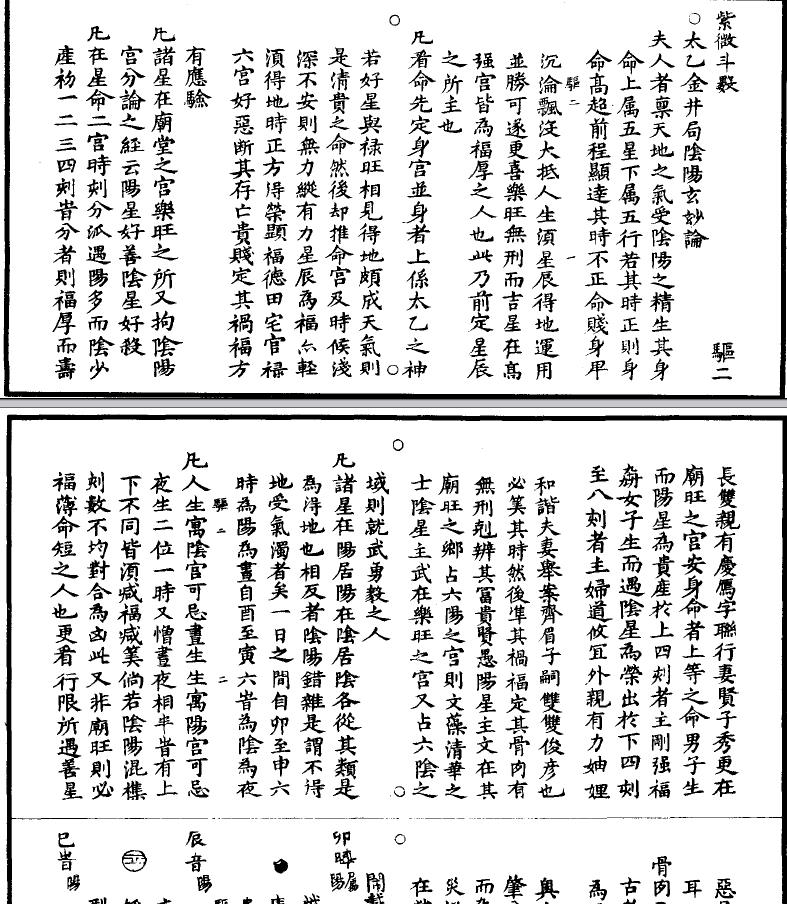 紫微斗數
○太乙金井局陰陽玄妙論 驅二
夫人者禀天地之氣受陰陽之精生其身
命上属五星下属五行若其時正則身
命髙超前程顯達其時不正命賤身甲
驅二 一
沉淪飄沒大抵人生湏星辰得地運用
並勝可遂更喜樂旺無刑而吉星在髙
强宫皆為福厚之人也此乃前定星辰
之所主也
凡看命先定身宫並身者上係太乙之神
若好星與禄旺相見得地頗成天氣則
是清貴之命然後却推命宫及時候淺
深不安則無力縱有力星辰為福亦輕
湏得地時正方得榮顯福德田宅官禄
六宫好惡断其存亡貴賤定其禍福方
有應驗
凡諸星在廟堂之宫樂旺之所又拘陰陽
宫分論之經云陽星好善陰星好殺
凡在星命二宫時刻分派遇陽多而陰少
產初一二三四刻昔分者則福厚而壽
長雙親有慶鴈字聯行妻賢子秀更在
廟旺之宫安身命者上等之命男子生
而陽星為貴產於上四刻者主剛强福
女子生而遇陰星為榮出於下四刻
至八刻者主婦道攸宜外親有力妯娌
和諧夫妻舉案齊眉子嗣雙雙俊彦也
必筭其時然後凖其禍福定其骨肉有
無刑剋辨其冨貴賢愚陽星主文在其
廟旺之鄉占六陽之宫則文藻清華之
士陰星主武在樂旺之宫又占六陰之
域則就武勇毅之人
凡諸星在陽居陽在陰居陰各從其類是
為得地也相反者陰陽錯雜是謂不得
地受氣濁者矣一日之間自卯至申六
時為陽為晝自酉至寅六昔為陰為夜
驅二 二
凡人生寓陰宫可忌晝生生寓陽宫可忌
夜生二位一時又憎晝夜相半昔有上
下不同皆湏减福减筭倘若陰陽混襍
刻數不均對合為凶此又非廟旺則必
福薄命短之人也更看行限所遇善星
骨肉
卯時属陽
辰昔陽
巳昔陽